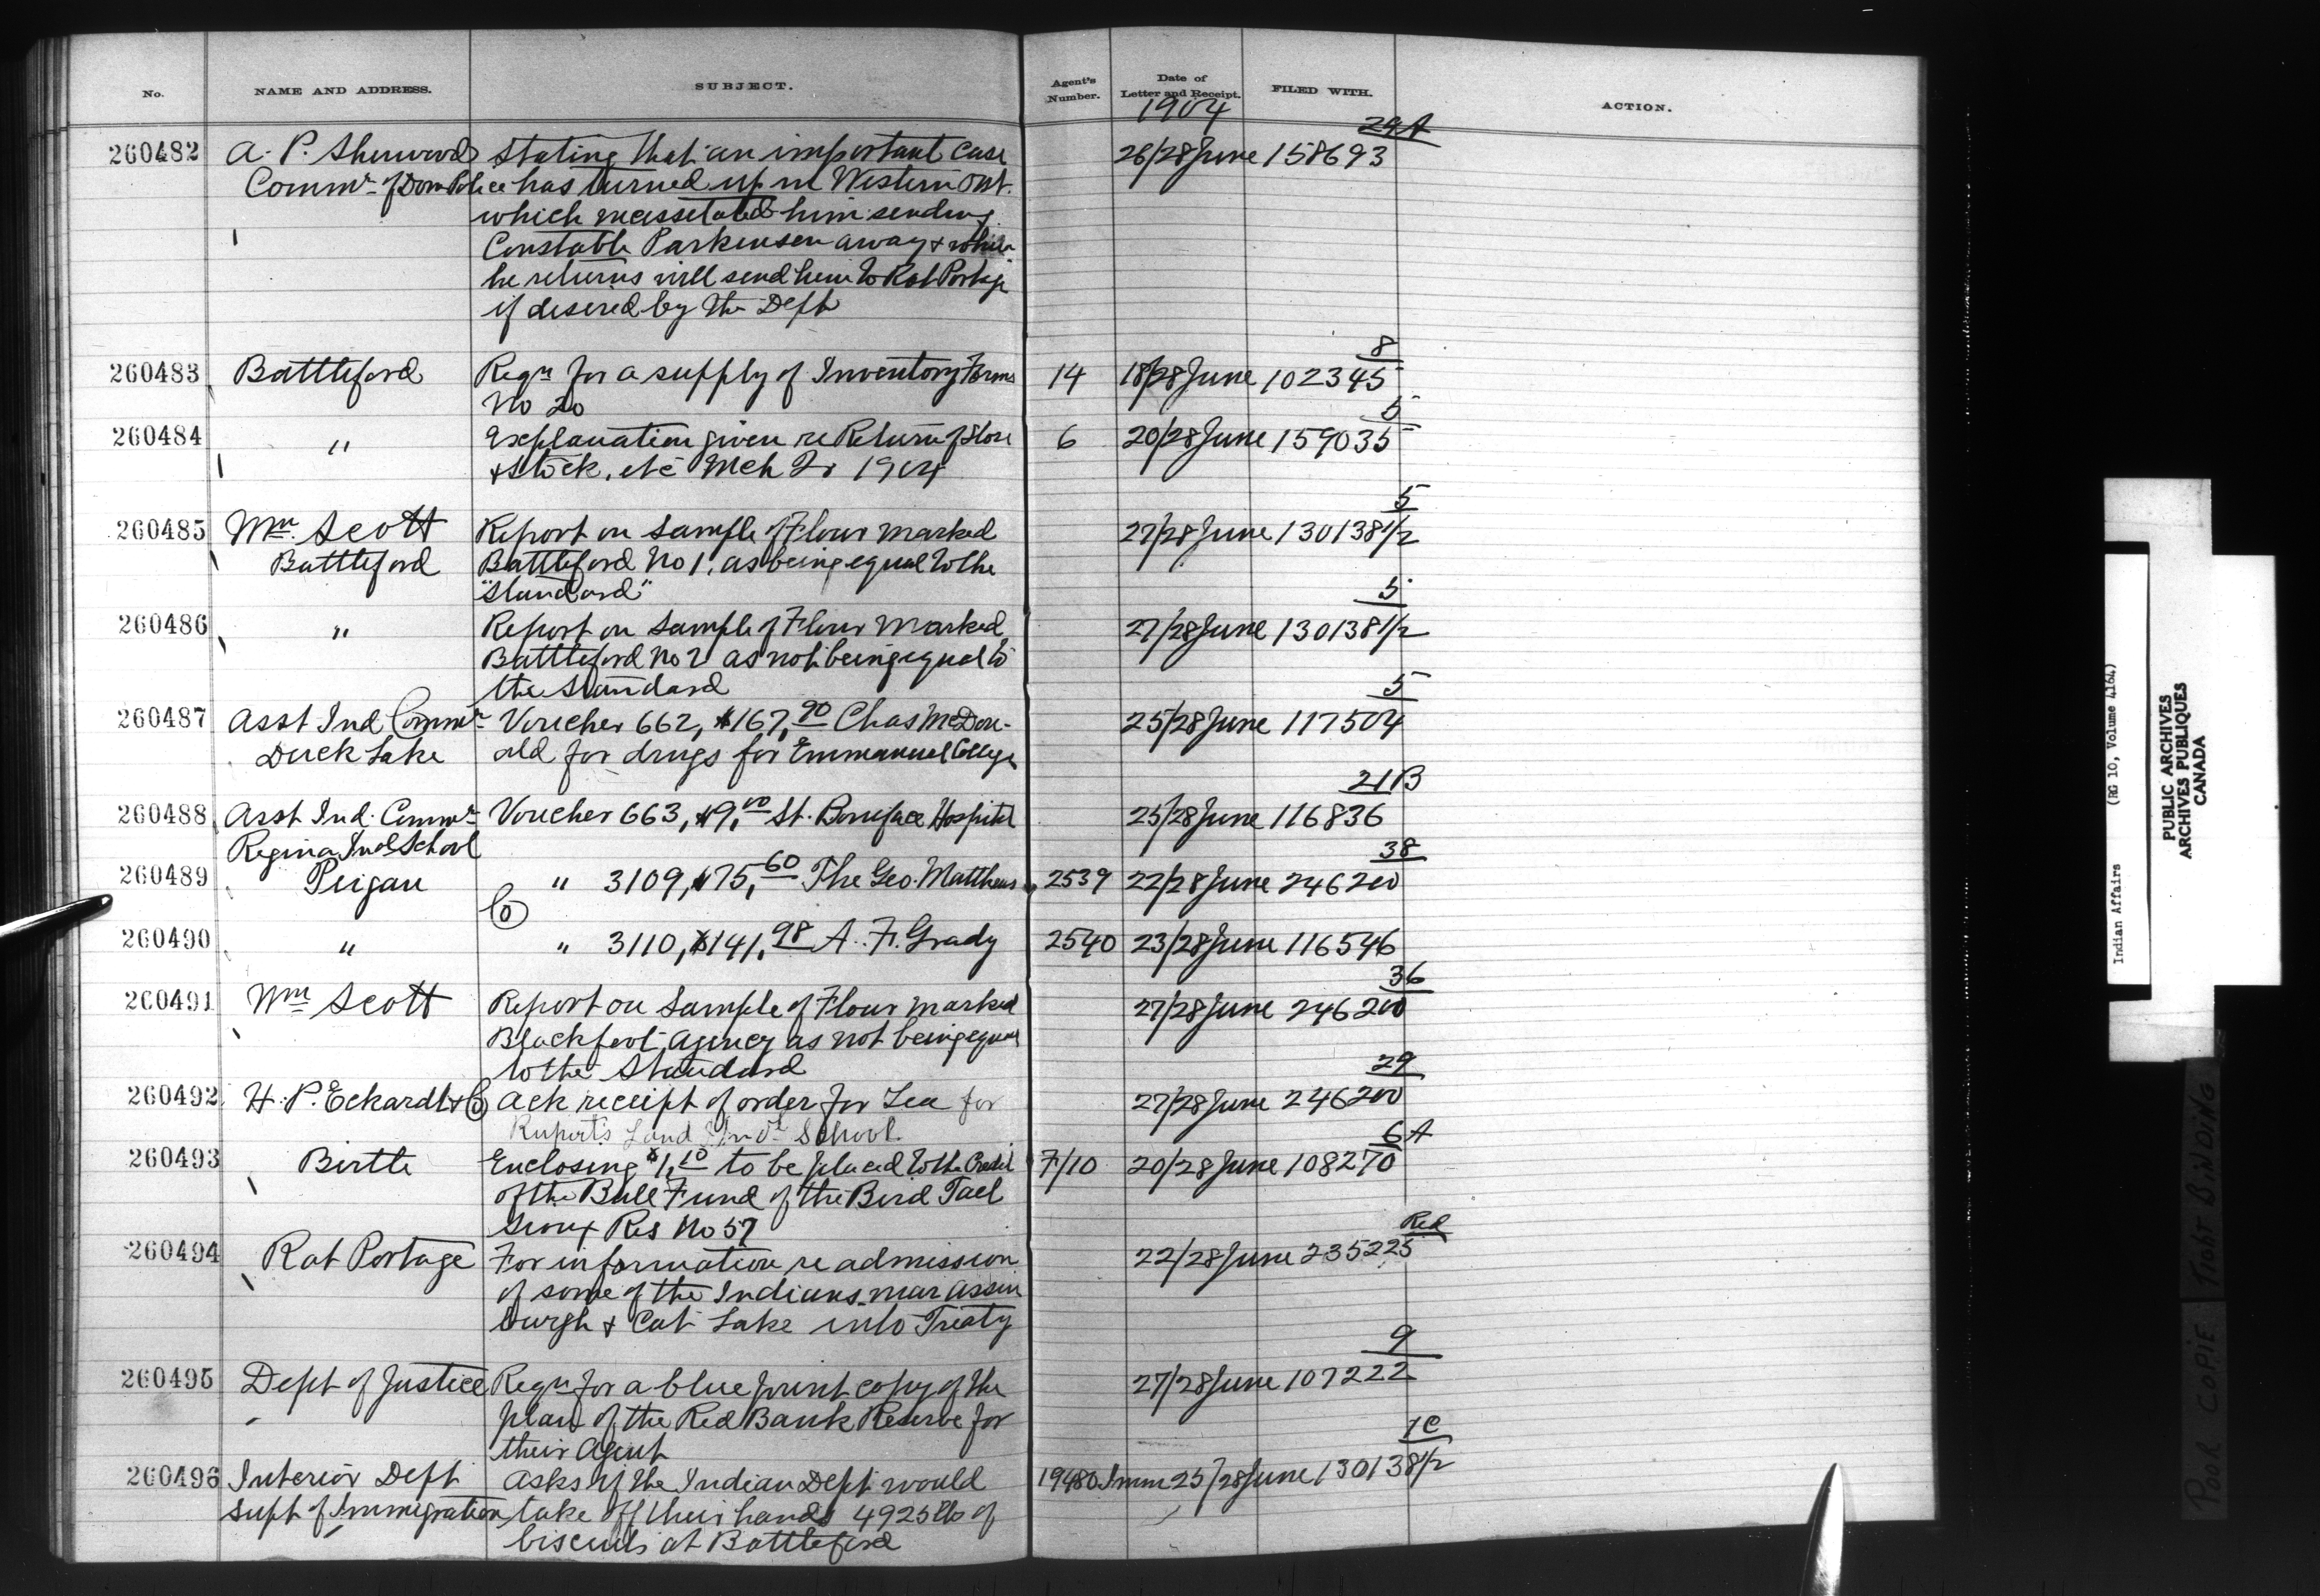 No. NAME AND ADDRESS. SUBJECT. Agent's Number. Date of Letter and Receipt. FILED WITH. ACTION.
1904
29A
260482 A. P. Sherwood Stating that an important case 26/28 June 158693
Commr. of Dom Police has turned up in Western Ont.
which necessitated him sending
Constable Parkinson away & when
he returns will send him to Rat Portage
if desired by the Dept
8
260483 Battleford Reqn for a supply of Inventory Forms 14 18/28 June 102345
No 20
5
260484 " Explanation given re Return of Store 6 20/28 June 159035
& Stock, etc Mch Qr 1904
5
260485 Wm Scott Report on Sample of Flour marked 27/28 June 130138 1/2
Battleford Battleford No 1, as being equal to the
"Standard"
5
260486 " Report on Sample of Flour marked 27/28 June 130138 1/2
Battleford No 2 as not being equal to
the Standard
5
260487 Asst Ind Commr Voucher 662, $167.90 Chas McDon- 25/28 June 117504
Duck Lake ald for drugs for Emmanuel College
21B
260488 Asst Ind. Commr Voucher 663, $9.00 St. Boniface Hospital 25/28 June 116836
Regina Indl School
38
260489 Peigan " 3109, $75.60 The Geo. Matthews 2539 22/28 June 246200
Co
260490 " " 3110, $141.98 A. F. Grady 2540 23/28 June 116546
36
260491 Wm Scott Report on Sample of Flour marked 27/28 June 246200
Blackfoot Agency as not being equal
to the Standard
29
260492 H. P. Eckardt & Co Ack receipt of order for Tea for 27/28 June 246200
Rupert's Land Indl School.
6A
260493 Birtle Enclosing $1.10 to be placed to the Credit 7/10 20/28 June 108270
of the Bull Fund of the Bird Tail
Sioux Res No 57
Red
260494 Rat Portage For information re admission 22/28 June 235225
of some of the Indians near Assin
burgh & Cat Lake into Treaty
9
260495 Dept of Justice Reqn for a blue print copy of the 27/28 June 107222
plan of the Red Bank Reserve for
their Agent
7C
260496 Interior Dept Asks if the Indian Dept would 19480 Imm 25/28 June 130138 1/2
Supt of Immigration take off their hands 4925 lbs of
biscuits at Battleford
Indian Affairs (RG 10, Volume 4164)
PUBLIC ARCHIVES
ARCHIVES PUBLIQUES
CANADA
POOR COPIE TIGHT BINDING